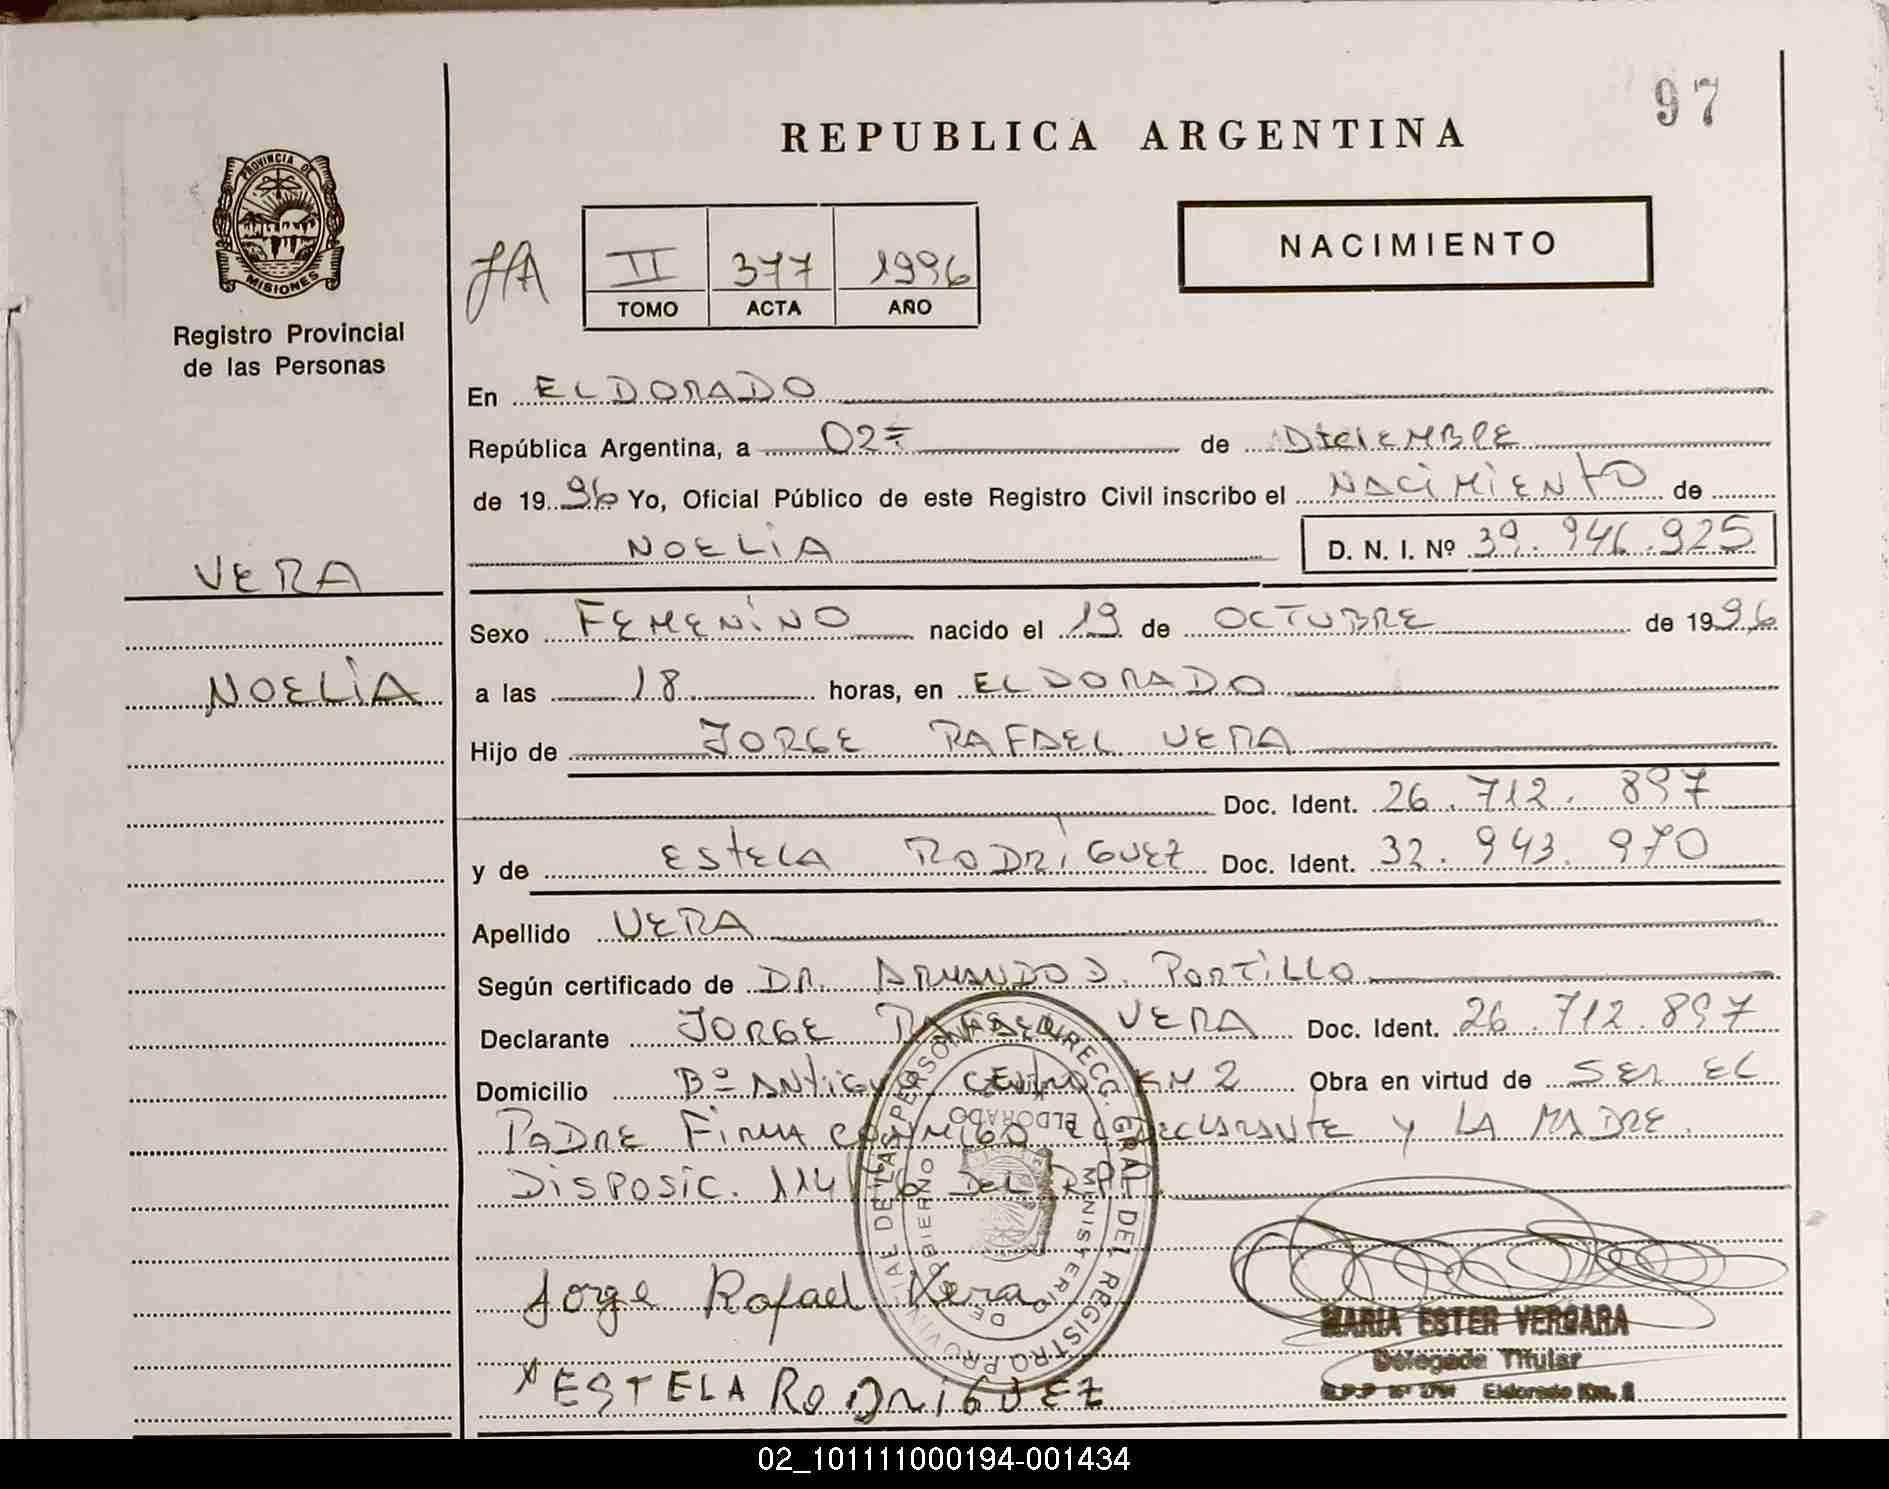 97
REPUBLICA ARGENTINA
PROVINCIA DE
MISIONES
Registro Provincial
de las Personas
II 377 1996
TOMO ACTA AÑO
NACIMIENTO
En ELDORADO
República Argentina, a 02 de DICIEMBRE
de 1996 Yo, Oficial Público de este Registro Civil inscribo el NACIMIENTO de
NOELIA D. N. I. Nº 39.946.925
VERA
NOELIA
Sexo FEMENINO nacido el 19 de OCTUBRE de 1996
a las 18 horas, en ELDORADO
Hijo de JORGE RAFAEL VERA
Doc. Ident. 26.712.897
y de ESTELA RODRIGUEZ Doc. Ident. 32.943.970
Apellido VERA
Según certificado de DR. ARMANDO D. PORTILLO
Declarante JORGE RAFAEL VERA Doc. Ident. 26.712.897
Domicilio Bº ANTIGUO CENTRO KM 2 Obra en virtud de SER EL
PADRE FIRMA CONMIGO EL DECLARANTE Y LA MADRE.
DISPOSIC. 114 DEL R.P.P.
DIRECC. GRAL. DEL REGISTRO PROVINCIAL DE LAS PERSONAS
MINISTERIO DE GOBIERNO
ELDORADO
Jorge Rafael Vera
x ESTELA RODRIGUEZ
MARIA ESTER VERGARA
Delegada Titular
Eldorado Km. 2
02_101111000194-001434